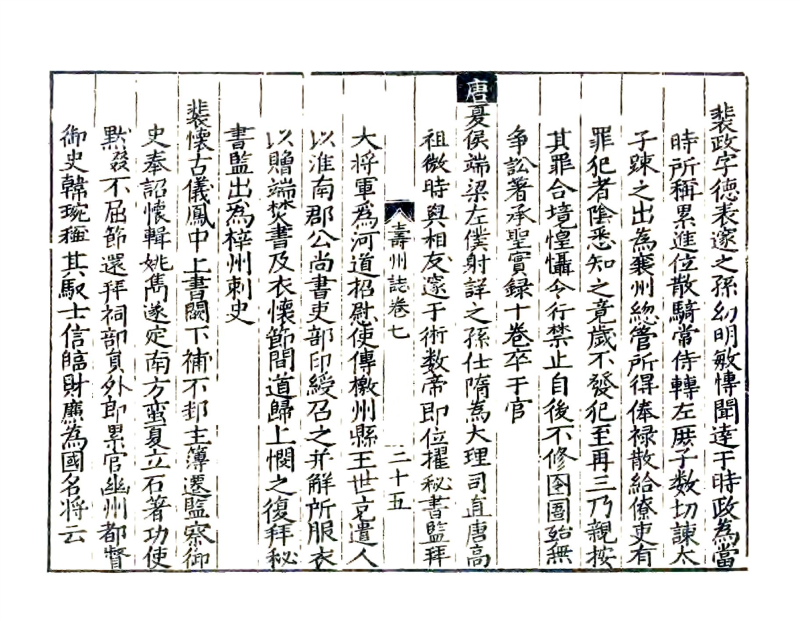 裴政字德表邃之孫幼明敏博聞達于時政為當
時所稱累進位散騎常侍轉左庶子数切諫太
子踈之出為襄州緫管所得俸禄散給僚吏有
罪犯者陰悉知之竟歲不發犯至再三乃親按
其罪合境惶懾令行禁止自後不修囹圄殆無
争訟著承聖實録十卷卒于官
唐夏侯端梁左僕射詳之孫仕隋為大理司直唐高
祖微時與相友邃于術数帝即位擢秘書監拜
大將軍為河道招慰使傳檄州縣王世充遣人
以淮南郡公尚書吏部印綬召之并解所服衣
以贈端焚書及衣懷節間道歸上憫之復拜秘
書監出為梓州刺史
壽州誌卷七
三十五
裴懷古儀鳳中上書闕下補下邽主簿遷監察御
史奉詔懷輯姚嶲遂定南方蛮夏立石著功使
黙啜不屈節還拜祠部員外郎累官幽州都督
御史韓琬稱其馭士信臨財廉為國名将云